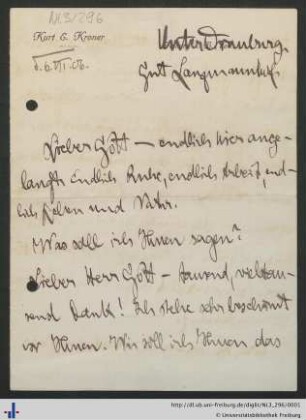 NL3/296
Kurt E. Kroner
d. 6. VII. 06.
Unterdrauburg.
Gut Langmannhof.
Lieber Gött — endlich hier ange-
langt. Endlich Ruhe, endlich Arbeit, end-
lich Leben und Natur.
Was soll ich Ihnen sagen?
Lieber Herr Gött — tausend, weltau-
send Dank! Ich stehe sehr beschämt
vor Ihnen. Wie soll ich Ihnen das
http://dl.ub.uni-freiburg.de/diglit/NL3_296/0001
© Universitätsbibliothek Freiburg